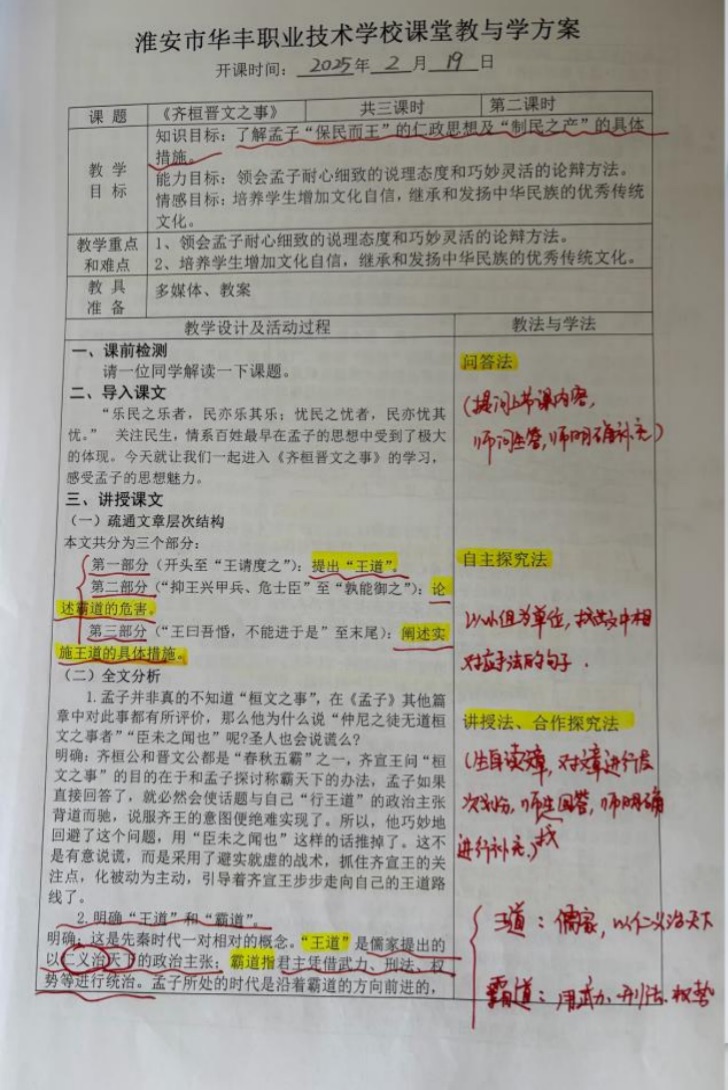 淮安市华丰职业技术学校课堂教与学方案
开课时间：2025年2月19日
课 题 《齐桓晋文之事》 共三课时 第二课时
教 学
目 标
知识目标：了解孟子“保民而王”的仁政思想及“制民之产”的具体
措施。
能力目标：领会孟子耐心细致的说理态度和巧妙灵活的论辩方法。
情感目标：培养学生增加文化自信，继承和发扬中华民族的优秀传统
文化。
教学重点
和难点
1、领会孟子耐心细致的说理态度和巧妙灵活的论辩方法。
2、培养学生增加文化自信，继承和发扬中华民族的优秀传统文化。
教 具
准 备
多媒体、教案
教学设计及活动过程 教法与学法
一、课前检测
请一位同学解读一下课题。
二、导入课文
“乐民之乐者，民亦乐其乐；忧民之忧者，民亦忧其
忧。” 关注民生，情系百姓最早在孟子的思想中受到了极大
的体现。今天就让我们一起进入《齐桓晋文之事》的学习，
感受孟子的思想魅力。
三、讲授课文
（一）疏通文章层次结构
本文共分为三个部分：
第一部分（开头至“王请度之”）：提出“王道”。
第二部分（“抑王兴甲兵、危士臣”至“孰能御之”）：论
述霸道的危害。
第三部分（“王曰吾惛，不能进于是”至末尾）：阐述实
施王道的具体措施。
（二）全文分析
1.孟子并非真的不知道“桓文之事”，在《孟子》其他篇
章中对此事都有所评价，那么他为什么说“仲尼之徒无道桓
文之事者”“臣未之闻也”呢?圣人也会说谎么?
明确：齐桓公和晋文公都是“春秋五霸”之一，齐宣王问“桓
文之事”的目的在于和孟子探讨称霸天下的办法，孟子如果
直接回答了，就必然会使话题与自己“行王道”的政治主张
背道而驰，说服齐王的意图便绝难实现了。所以，他巧妙地
回避了这个问题，用“臣未之闻也”这样的话推掉了。这不
是有意说谎，而是采用了避实就虚的战术，抓住齐宣王的关
注点，化被动为主动，引导着齐宣王步步走向自己的王道路
线了。
2.明确“王道”和“霸道”。
明确：这是先秦时代一对相对的概念。“王道”是儒家提出的
以仁义治天下的政治主张；霸道指君主凭借武力、刑法、权
势等进行统治。孟子所处的时代是沿着霸道的方向前进的，
问答法
（提问上节课内容，
师问生答，师明确补充）
自主探究法
以小组为单位，找出文中相
对应手法的句子．
讲授法、合作探究法
（生自读文章，对文章进行层
次划分，师生回答，师明确
找
进行补充。）
王道：儒家，以仁义治天下
霸道：用武力、刑法、权势